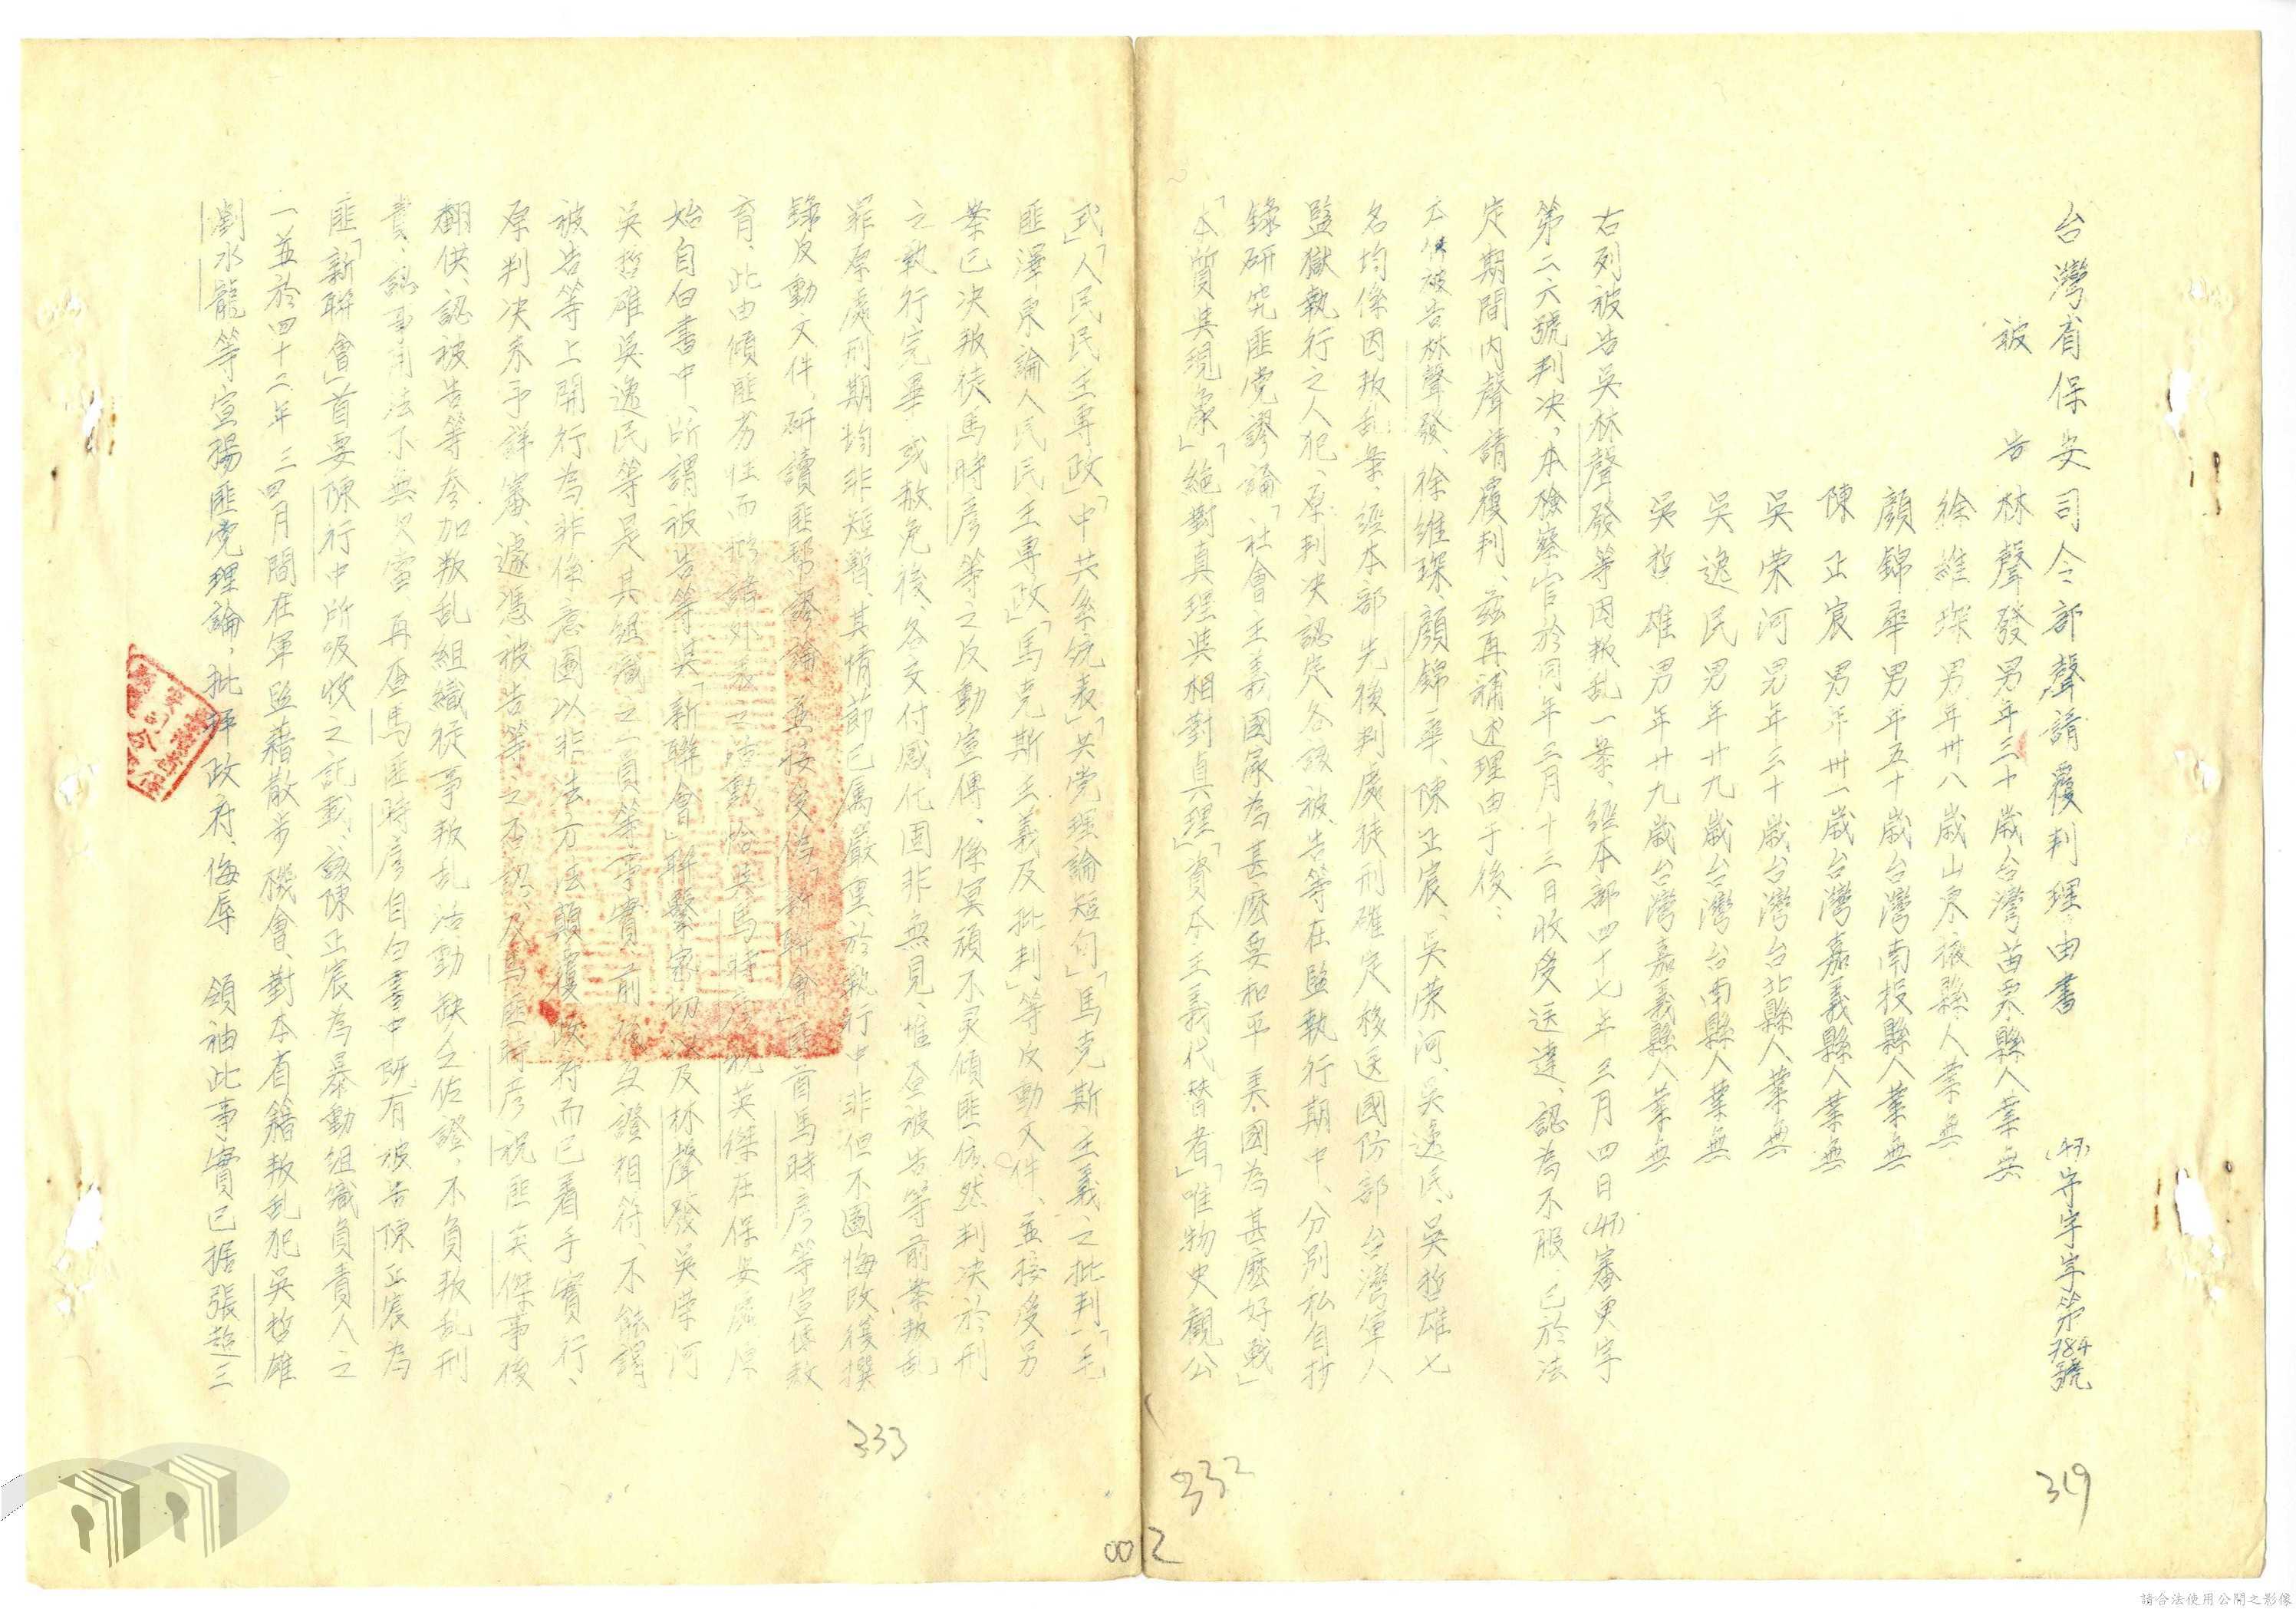 台灣省保安司令部聲請覆判理由書
(47)守字字第784號
被告 林聲發男年三十歲台灣苗栗縣人業無
徐維琛男年卅八歲山東掖縣人業無
顏錦華男年五十歲台灣南投縣人業無
陳正宸男年卅一歲台灣嘉義縣人業無
吳荣河男年三十歲台灣台北縣人業無
吳逸民男年廿九歲台灣台南縣人業無
吳哲雄男年廿九歲台灣嘉義縣人業無
右列被告吳林聲發等因叛乱一案、經本部四十七年三月四日(47)審更字
第二六號判决,本檢察官於同年三月十三日收受送達、認為不服、已於法
定期間內聲請覆判、茲再補述理由于後:
被告林聲發、徐維琛、顏錦華、陳正宸、吳荣河、吳逸民、吳哲雄七
名均係因叛乱案、經本部先後判處徒刑確定移送國防部台灣軍人
監獄執行之人犯、原判决認定各該被告等在監執行期中、分別私自抄
錄研究匪党謬論「社會主義國家為甚麼要和平美國為甚麼好戰」
「本質與現象」「絕對真理與相對真理」「資本主義代替者」「唯物史觀公
式」「人民民主專政」「中共系統表」「共党理論短句」「馬克斯主義之批判」「毛
匪澤東論人民民主專政」「馬克斯主義及批判」等反動文件、並接受另
案已决叛徒馬時彥等之反動宣傳、係冥頑不灵傾匪依然判决於刑
之執行完畢或赦免後、各交付感化固非無見、惟查被告等前案叛乱
罪原處刑期均非短暫、其情節已属嚴重、於執行中非但不圖悔改復撰
錄反動文件、研讀匪幫謬論、並接受偽「新聯會」首馬時彥等宣傳教
育、此由傾匪
始自白書中、所謂被告等與「新聯會」聯繫密切以及林聲發吳荣河
吳哲雄吳逸民等是其組織之一員等事實、前後互證相符、不能謂
被告等上開行為、非係意圖以非法方法顛覆政府而已着手實行、
原判决未予詳審、遽憑被告等之否認、及馬匪時彥祝匪英傑事後
翻供、認被告等參加叛乱組織從事叛乱活動缺乏佐證、不負叛乱刑
責、認事用法不無欠當、再查馬匪時彥自白書中既有被告陳正宸為
匪「新聯會」首要陳行中所吸收之記載、該陳正宸為暴動組織負責人之
一並於四十二年三四月間在軍監藉散步機會、對本省籍叛乱犯吳哲雄
劉水龍等宣揚匪党理論,批評政府、侮辱 領袖此事實已据張超三
319
332
333
002
請合法使用公開之影像